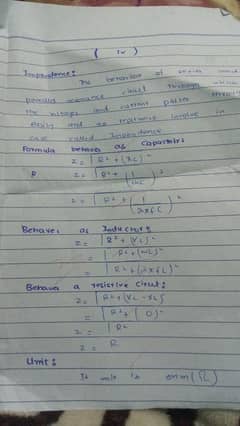 ( iv )
Impendence:
The behaviour of series and
parallel resonance circuit through which
the voltage and current passes
and no resistance involve in
case called Impendence
Formula behaves as Capacitor:
Z = √R² + (Xc)²
Z = √R² + (1/ωc)²
Z = √R² + (1/2πfc)²
Behaves as Inductor:
Z = √R² + (XL)²
= √R² + (ωL)²
= √R² + (2πfL)²
Behaves a resistive Circut:
Z = √R² + (XL - XC)
= √R² + (0)²
Z = √R²
Z = R
Unit:
Its unit is ohm (Ω)